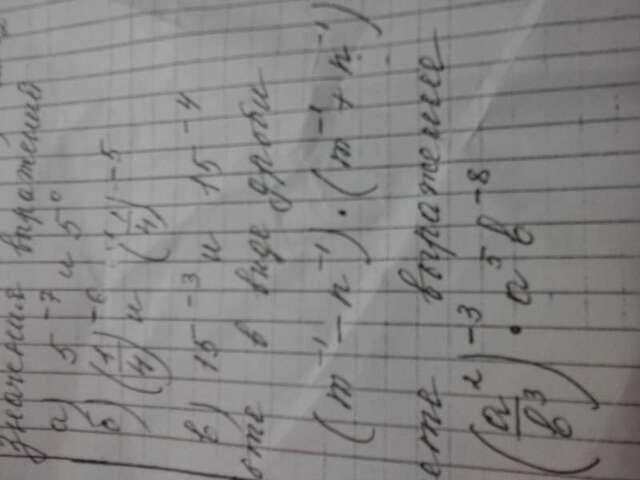 значения выражений
а) 5⁻⁷ и 5⁰
б) (1/4)⁻⁶ и (1/4)⁻⁵
в) 15⁻³ и 15⁻⁴
в виде дроби
(m⁻¹ - n⁻¹) · (m⁻¹ + n⁻¹)
выражение
(a²/b³)⁻³ · a⁵b⁻⁸